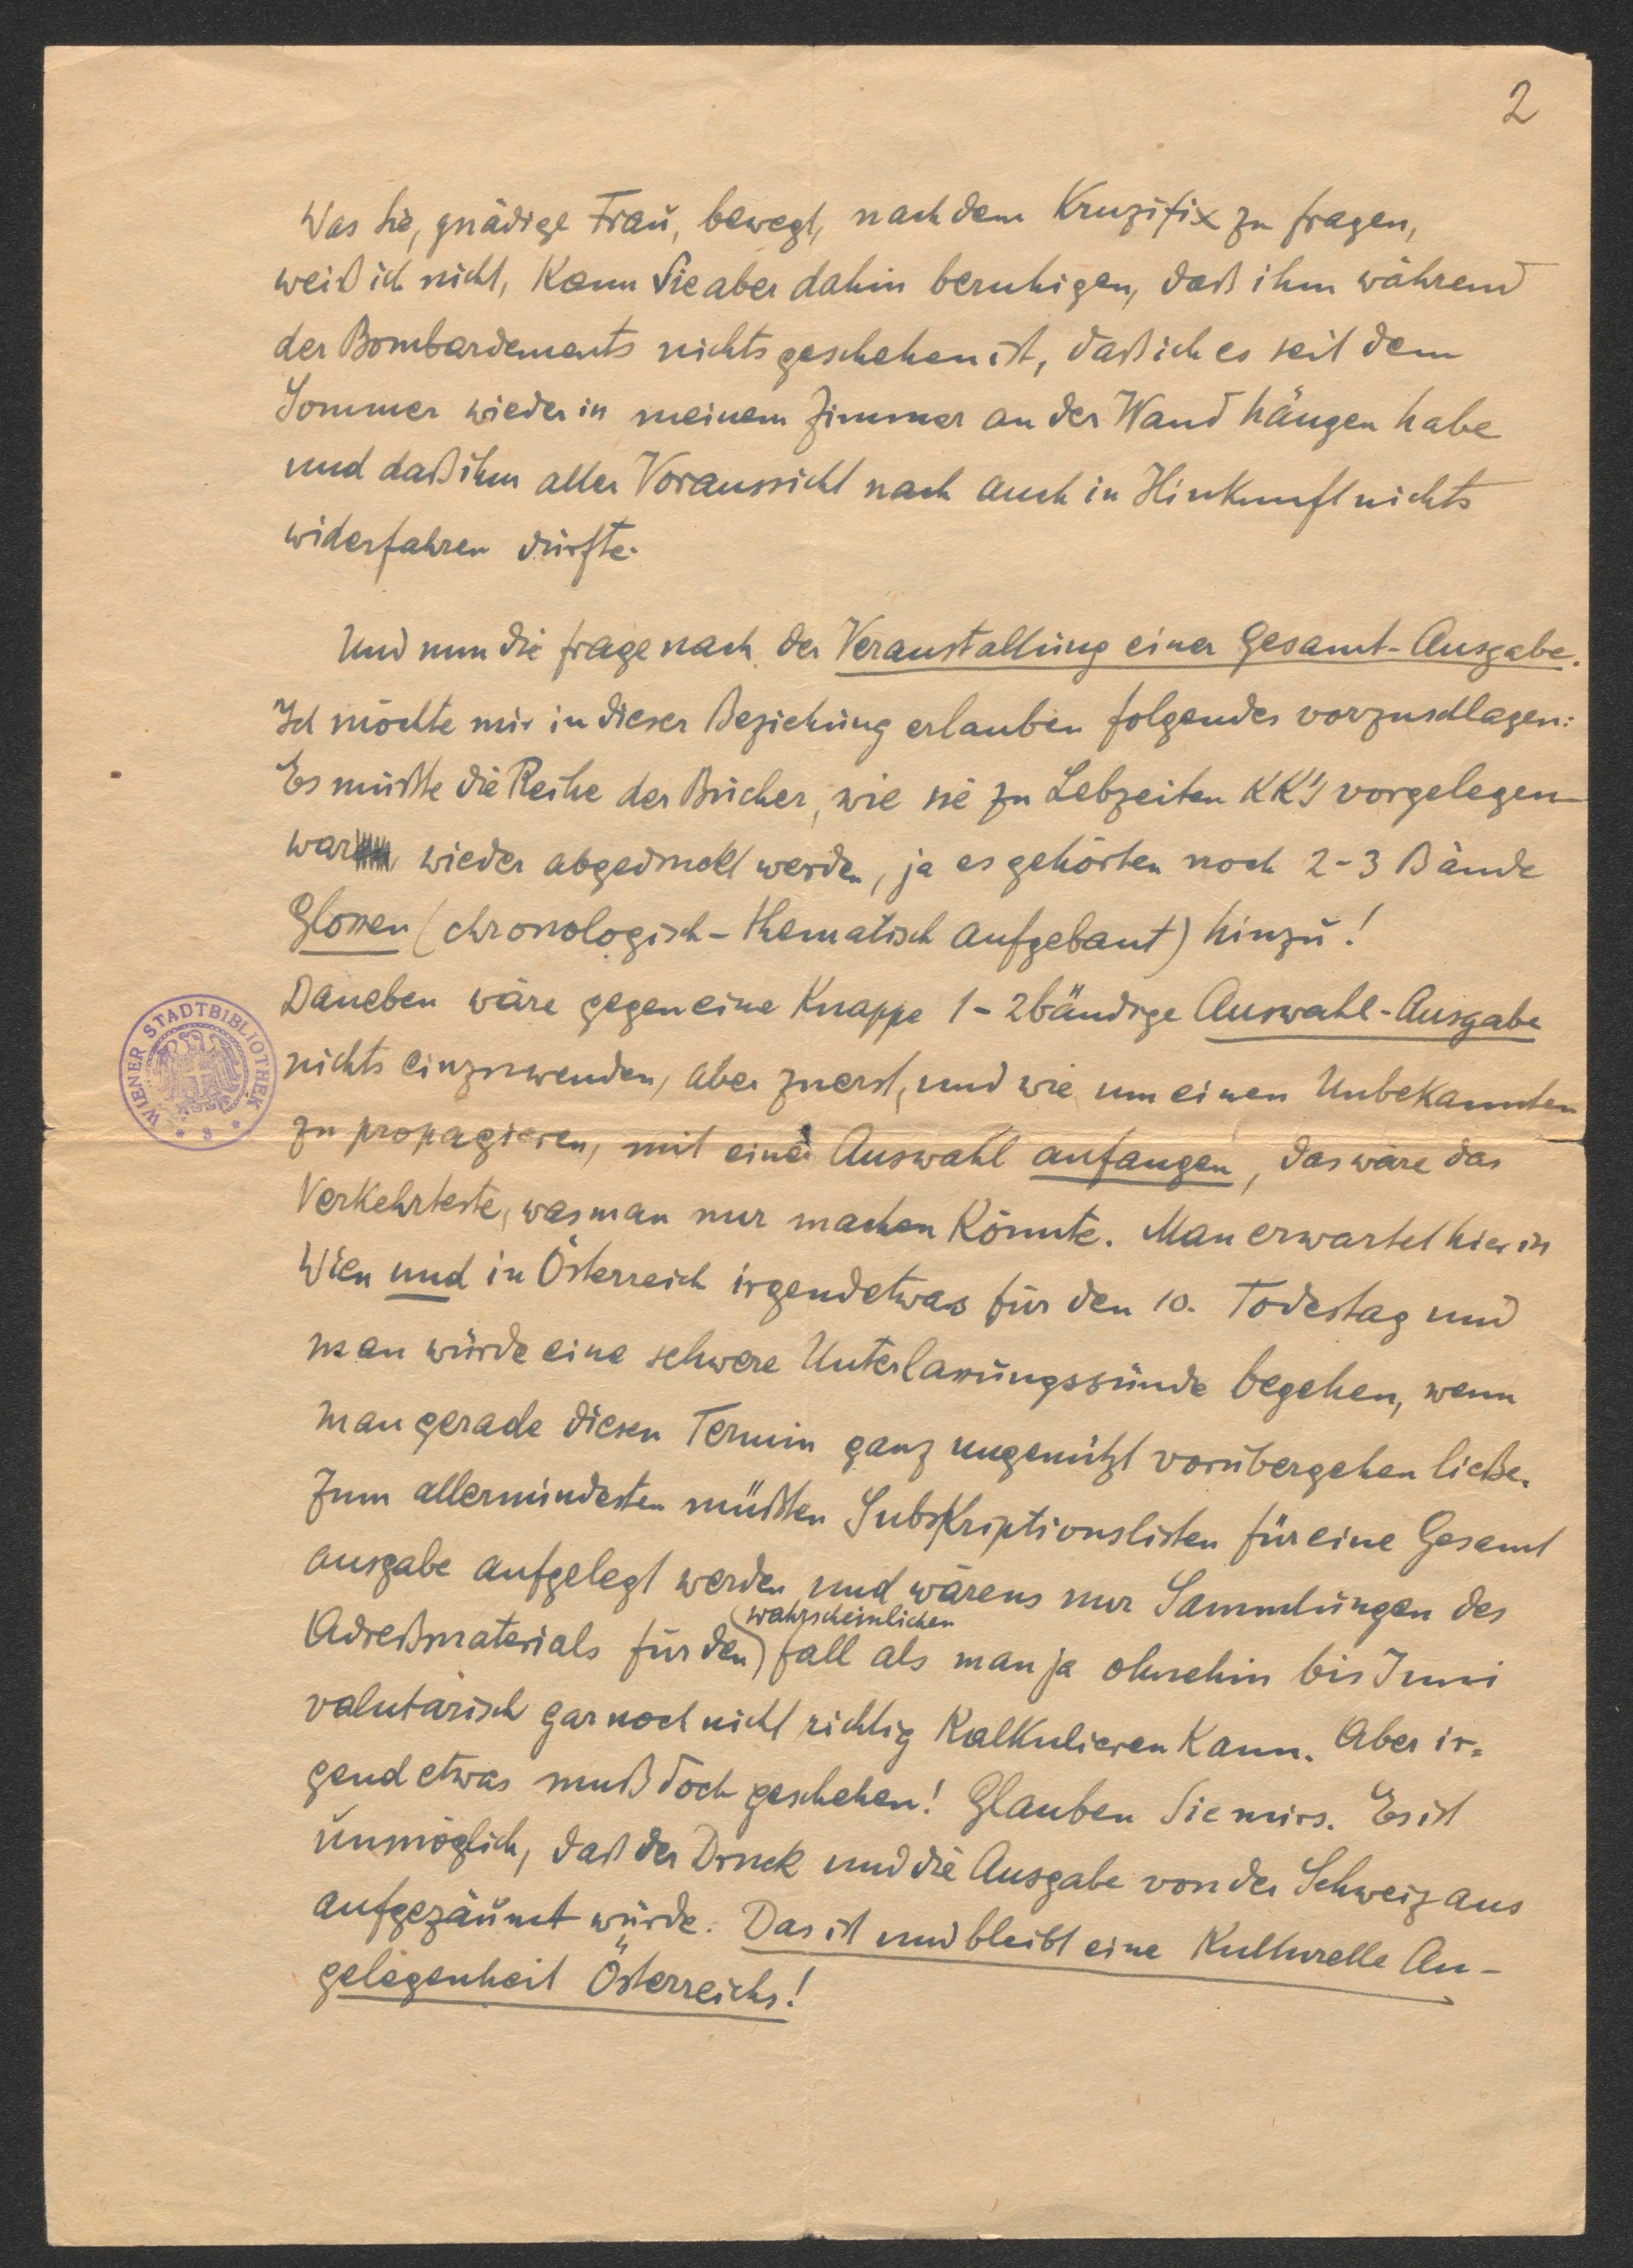 2
Was Sie, gnädige Frau, bewegt, nach dem Kruzifix zu fragen,
weiß ich nicht, Kann Sie aber dahin beruhigen, daß ihm während
der Bombardements nichts geschehen ist, daß ich es seit dem
Sommer wieder in meinem Zimmer an der Wand hängen habe
und daß ihm aller Voraussicht nach auch in Hinkunft nichts
widerfahren dürfte.
Und nun die Frage nach der Veranstaltung einer Gesamt-Ausgabe.
Ich möchte mir in dieser Beziehung erlauben folgendes vorzuschlagen:
Es müßte die Reihe der Bücher, wie sie zu Lebzeiten KK's vorgelegen
war wieder abgedruckt werden, ja es gehörten noch 2-3 Bände
Glossen (chronologisch-thematisch aufgebaut) hinzu!
Daneben wäre gegen eine Knappe 1-2bändige Auswahl-Ausgabe
nichts einzuwenden, aber zuerst, und wie um einen Unbekannten
zu propagieren, mit einer Auswahl anfangen, das wäre das
Verkehrteste, was man nur machen Könnte. Man erwartet hier in
Wien und in Österreich irgendetwas für den 10. Todestag und
man würde eine schwere Unterlassungssünde begehen, wenn
man gerade diesen Termin ganz ungenützt vorübergehen ließe.
Zum allermindesten müßten Subskriptionslisten für eine Gesamt
ausgabe aufgelegt werden und wärens nur Sammlungen des
wahrscheinlichen
Adreßmaterials für den Fall als man ja ohnehin bis Juni
valutarisch gar noch nicht richtig Kalkulieren Kann. Aber ir=
gend etwas muß doch geschehen! Glauben Sie mirs. Es ist
unmöglich, daß der Druck und die Ausgabe von der Schweiz aus
aufgezäumt würde. Das ist und bleibt eine Kulturelle An-
gelegenheit Österreichs!
WIENER STADTBIBLIOTHEK
* 8 *